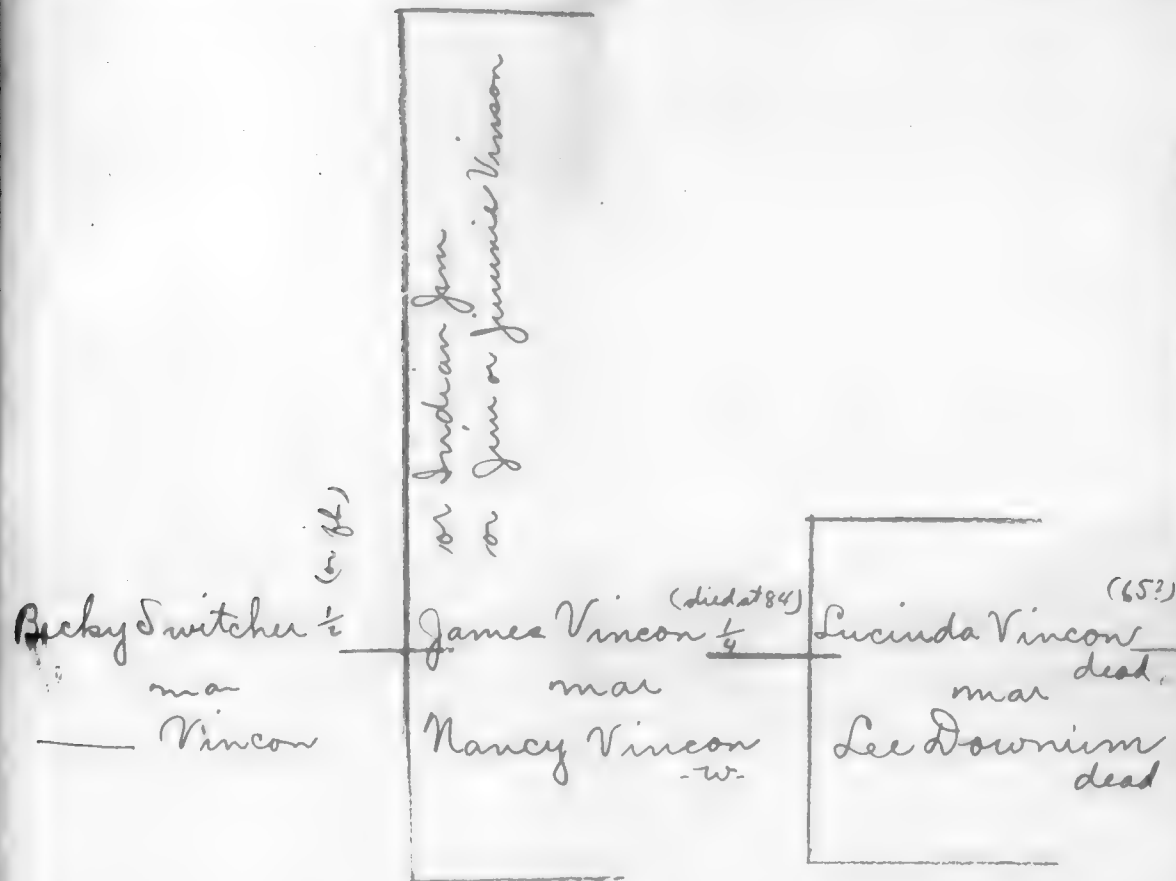 Becky Switcher ½ (or fb)
mar
—— Vincon
or Indian Jim
or Jim or Jimmie Vinson
James Vincon ¼ (died at 84)
mar
Nancy Vincon
-w-
Lucinda Vincon (65?)
dead.
mar
Lee Downium
dead